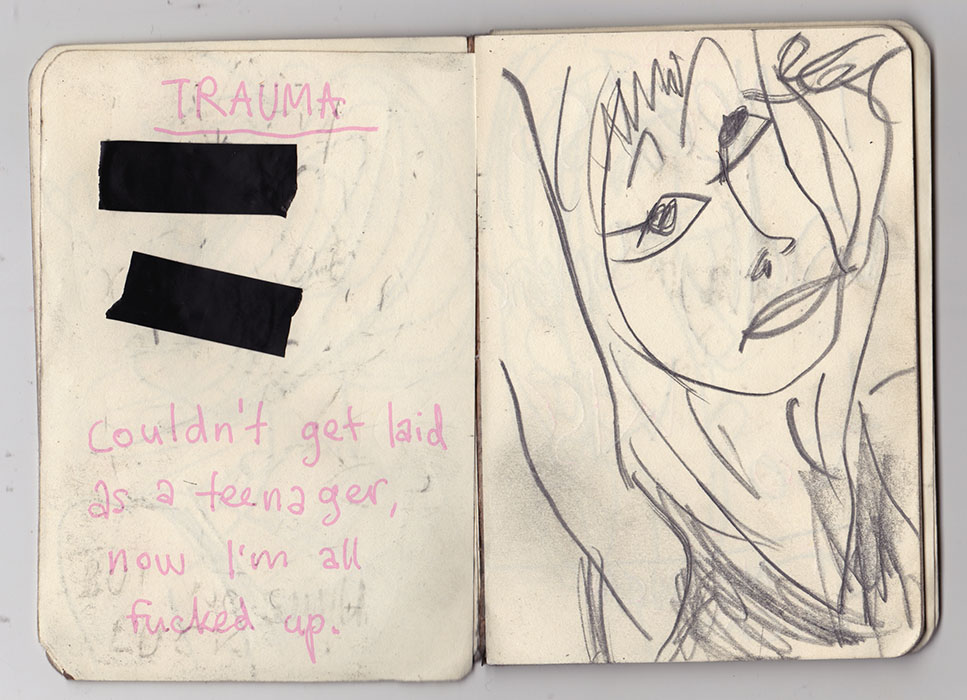 TRAUMA
couldn't get laid
as a teenager,
now I'm all
fucked up.